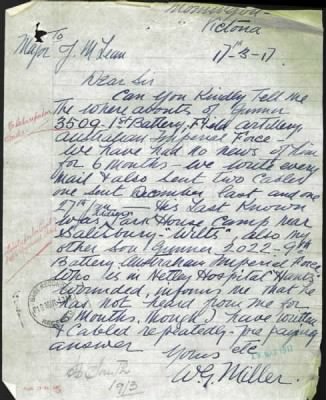 Victoria
To
Major J. M Lean
17-3-17
Dear Sir
Can You Kindly Tell Me
The where abouts of Gunner
3509 1st Battery, Field artilery
Australian Imperial Force-
We have had no news of him
for 6 Months - we wrote every
Mail & also sent two Cables
one sent December last and one
27th His Last Known
was Park House Camp near
Salisbury "Wilts" also My
other son Gunner 2022-9th
Battery Australian Imperial Force
Who is in Netley Hospital Hants
Wounded, informs me that he
has not heard from me for
6 months, though I have written
& Cabled repeatedly-
answer
Yours etc
W G Miller.
19/3